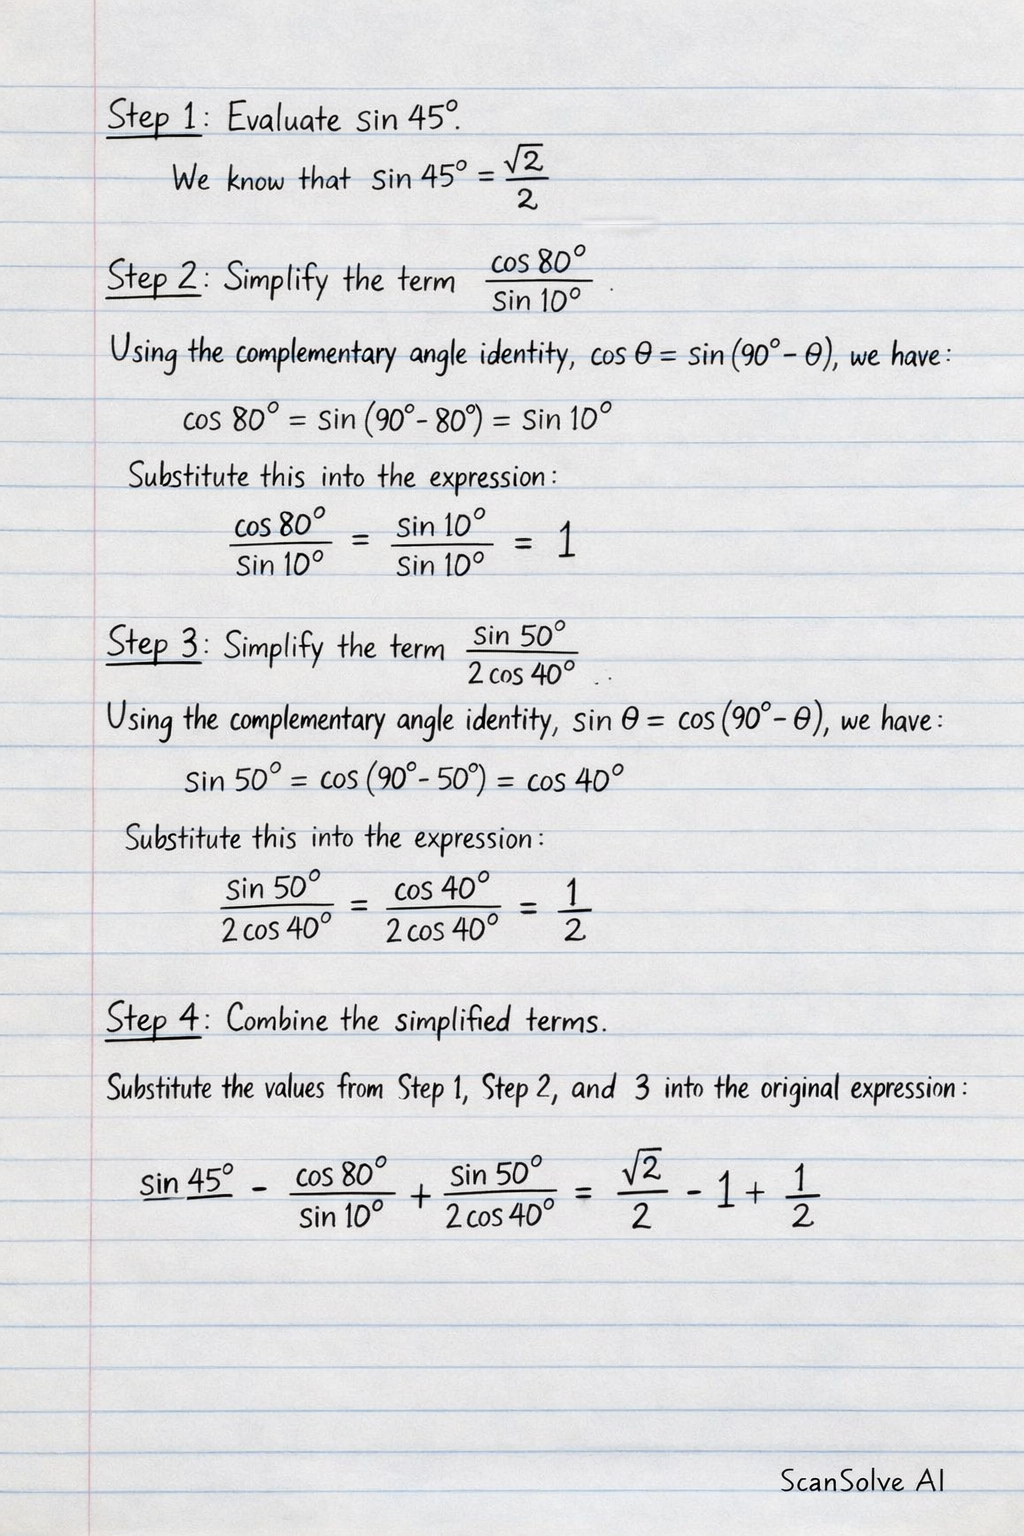 Step 1: Evaluate sin 45°.
We know that sin 45° = √2/2
Step 2: Simplify the term cos 80°/sin 10° .
Using the complementary angle identity, cos θ = sin (90° - θ), we have:
cos 80° = sin (90° - 80°) = sin 10°
Substitute this into the expression:
cos 80°/sin 10° = sin 10°/sin 10° = 1
Step 3: Simplify the term sin 50°/2 cos 40° . .
Using the complementary angle identity, sin θ = cos (90° - θ), we have:
sin 50° = cos (90° - 50°) = cos 40°
Substitute this into the expression:
sin 50°/2 cos 40° = cos 40°/2 cos 40° = 1/2
Step 4: Combine the simplified terms.
Substitute the values from Step 1, Step 2, and 3 into the original expression:
sin 45° - cos 80°/sin 10° + sin 50°/2 cos 40° = √2/2 - 1 + 1/2
ScanSolve AI